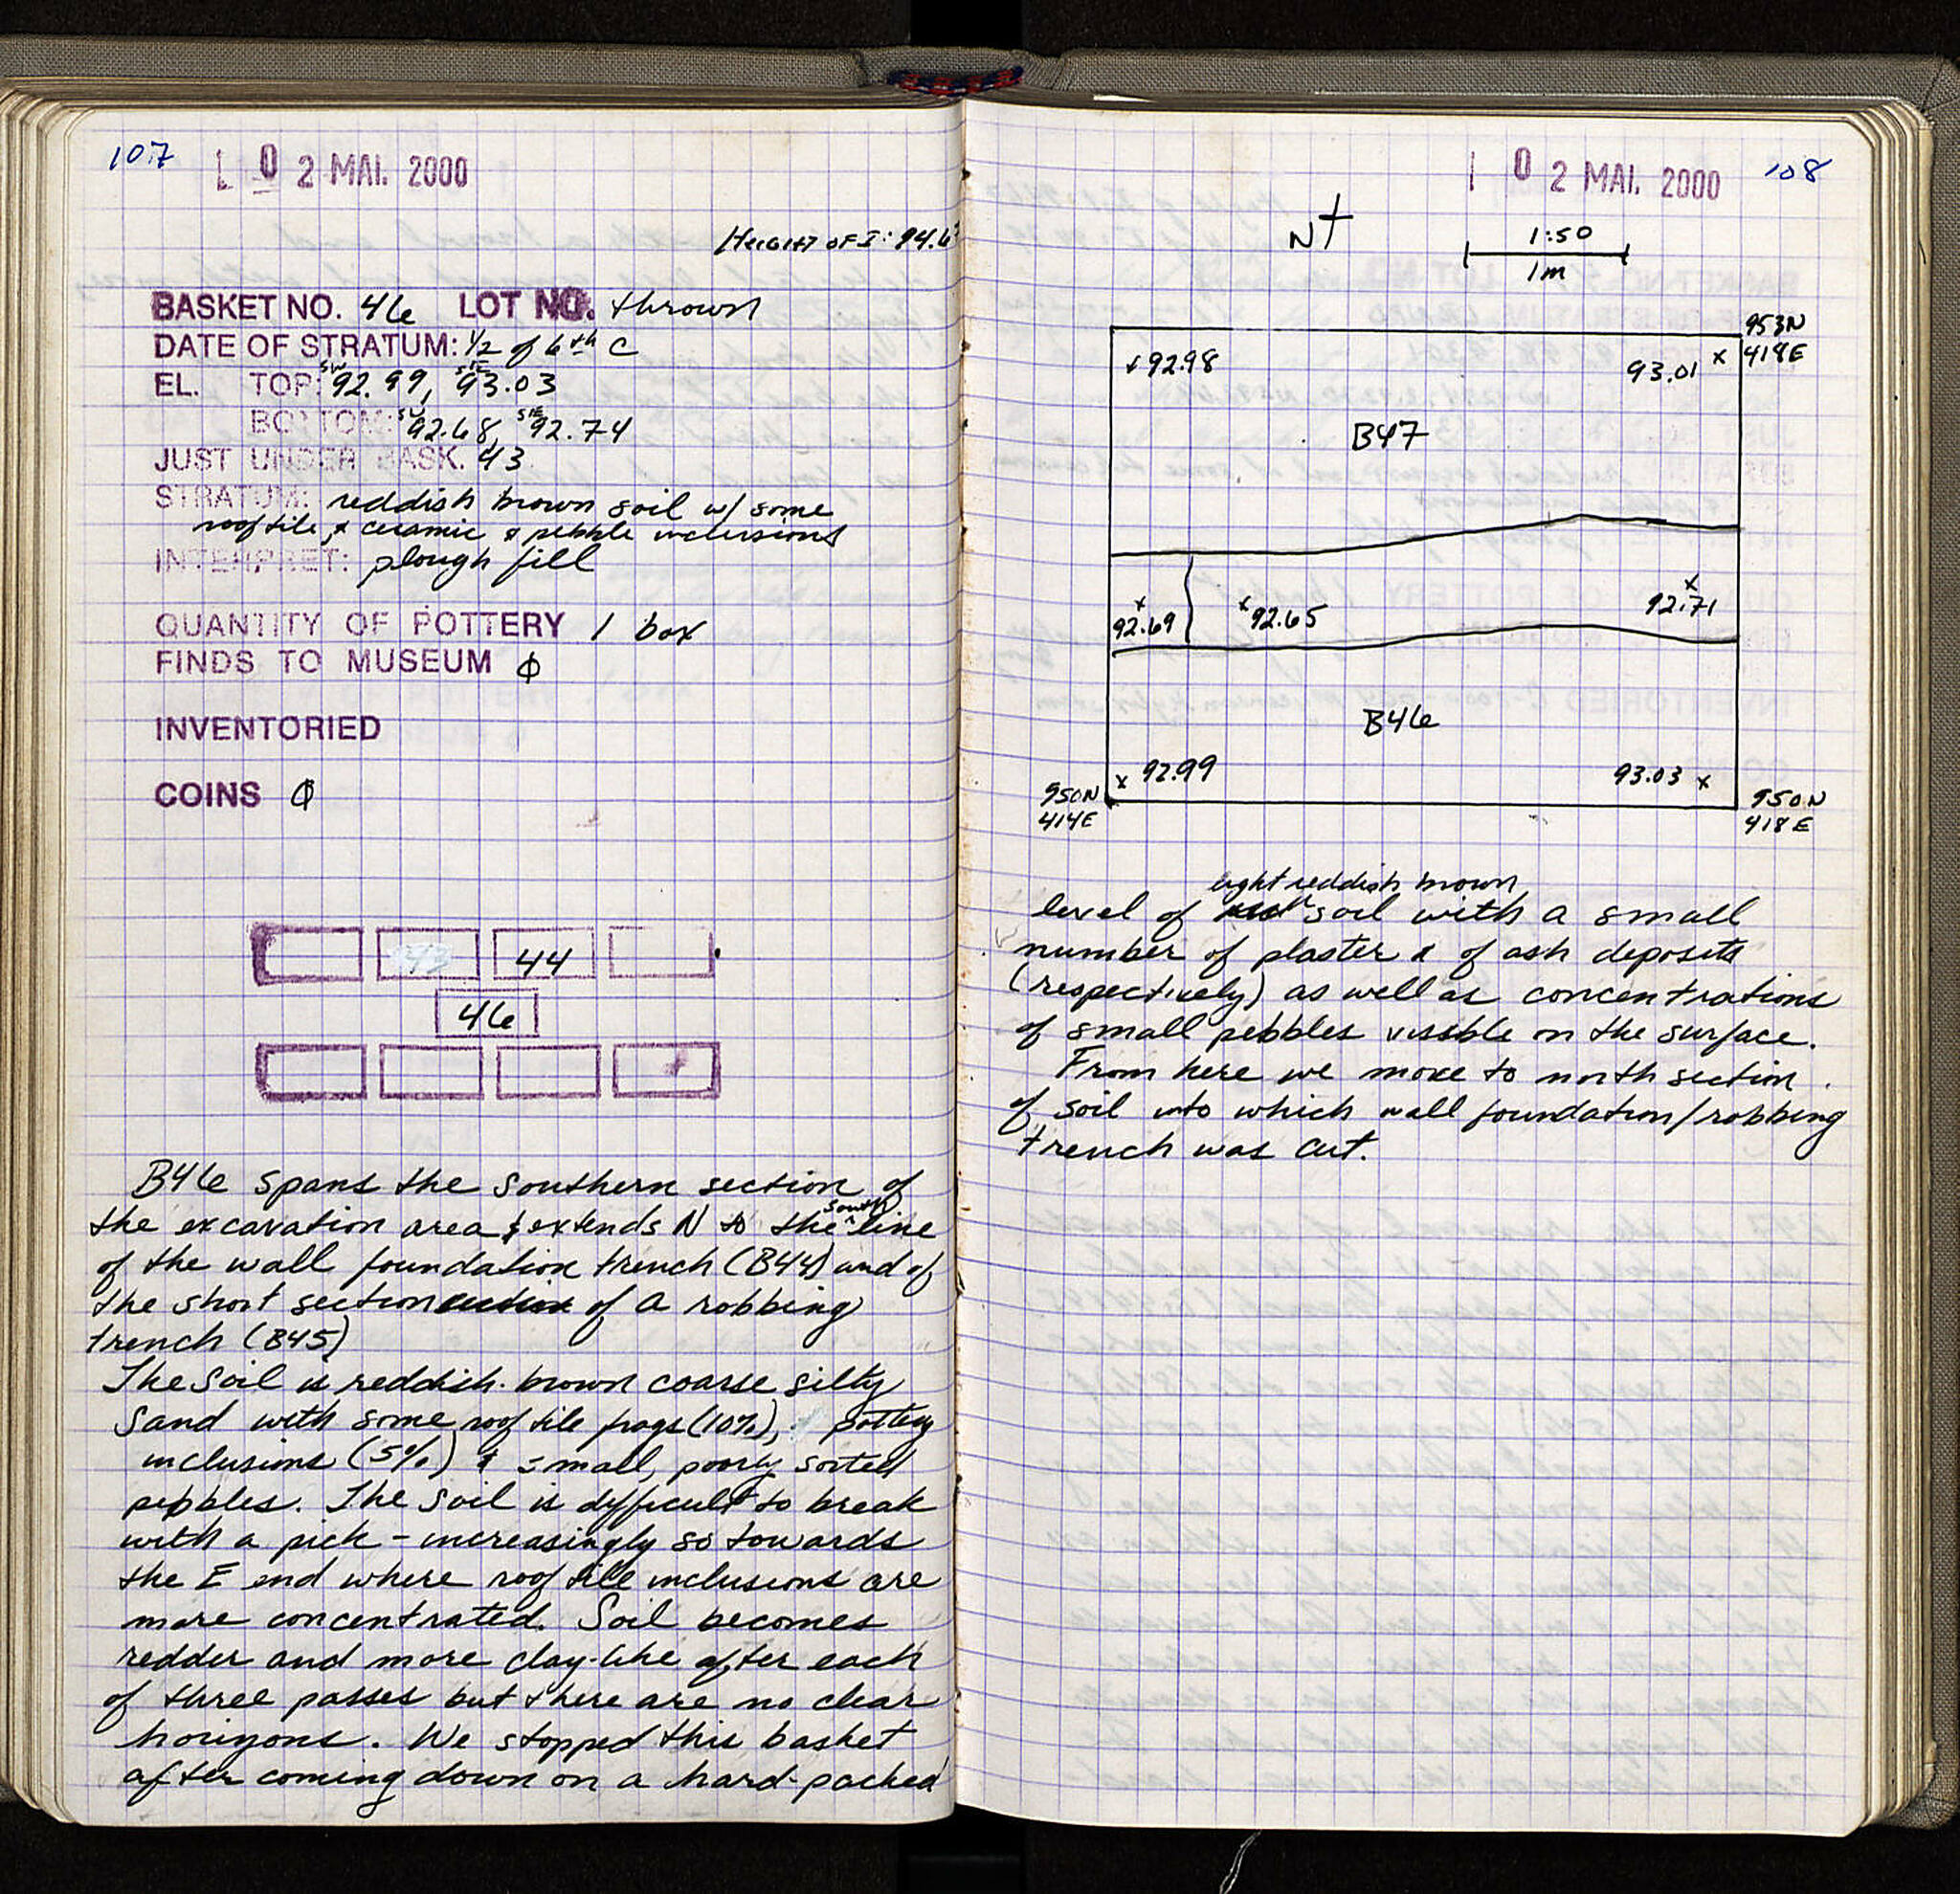 107
0 2 MAI. 2000
HEIGHT OF I: 94.6
BASKET NO. 46 LOT NO. thrown
DATE OF STRATUM: 1/2 of 6th C
EL. TOP: SW 92.99, SE 93.03
BOTTOM: SW 92.68, SE 92.74
JUST UNDER BASK. 43
STRATUM: reddish brown soil w/ some
roof tile, & ceramic & pebble inclusions
INTERPRET: plough fill
QUANTITY OF POTTERY 1 box
FINDS TO MUSEUM ϕ
INVENTORIED
COINS ϕ
43 44
46
B46 spans the southern section of
the excavation area & extends N to the south line
of the wall foundation trench (B44) and of
the short section of a robbing
trench (B45)
The soil is reddish-brown coarse silty
sand with some roof tile frags (10%), pottery
inclusions (5%) & small, poorly sorted
pebbles. The soil is difficult to break
with a pick - increasingly so towards
the E end where roof tile inclusions are
more concentrated. Soil becomes
redder and more clay-like after each
of three passes but there are no clear
horizons. We stopped this basket
after coming down on a hard-packed
0 2 MAI. 2000
108
N
1:50
1m
953N
418E
92.98
93.01
B47
92.69
92.65
92.71
B46
92.99
93.03
950N
414E
950N
418E
level of light reddish brown soil with a small
number of plaster & of ash deposits
(respectively) as well as concentrations
of small pebbles visible on the surface.
From here we move to north section
of soil into which wall foundation/robbing
trench was cut.